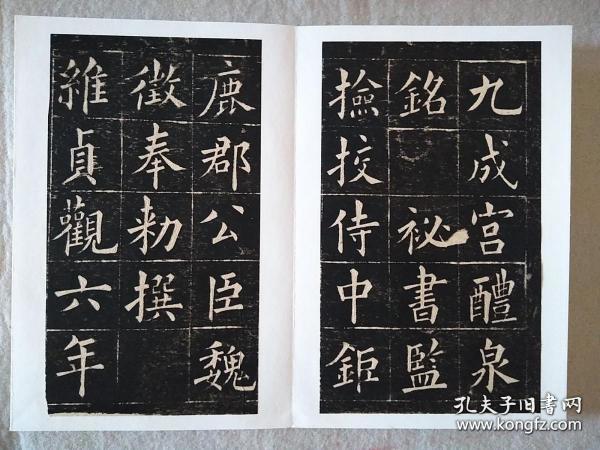 九成宮醴泉
銘 祕書監
撿挍侍中鉅
鹿郡公臣魏
徵奉勅撰
維貞觀六年
孔夫子旧书网
www.kongfz.com